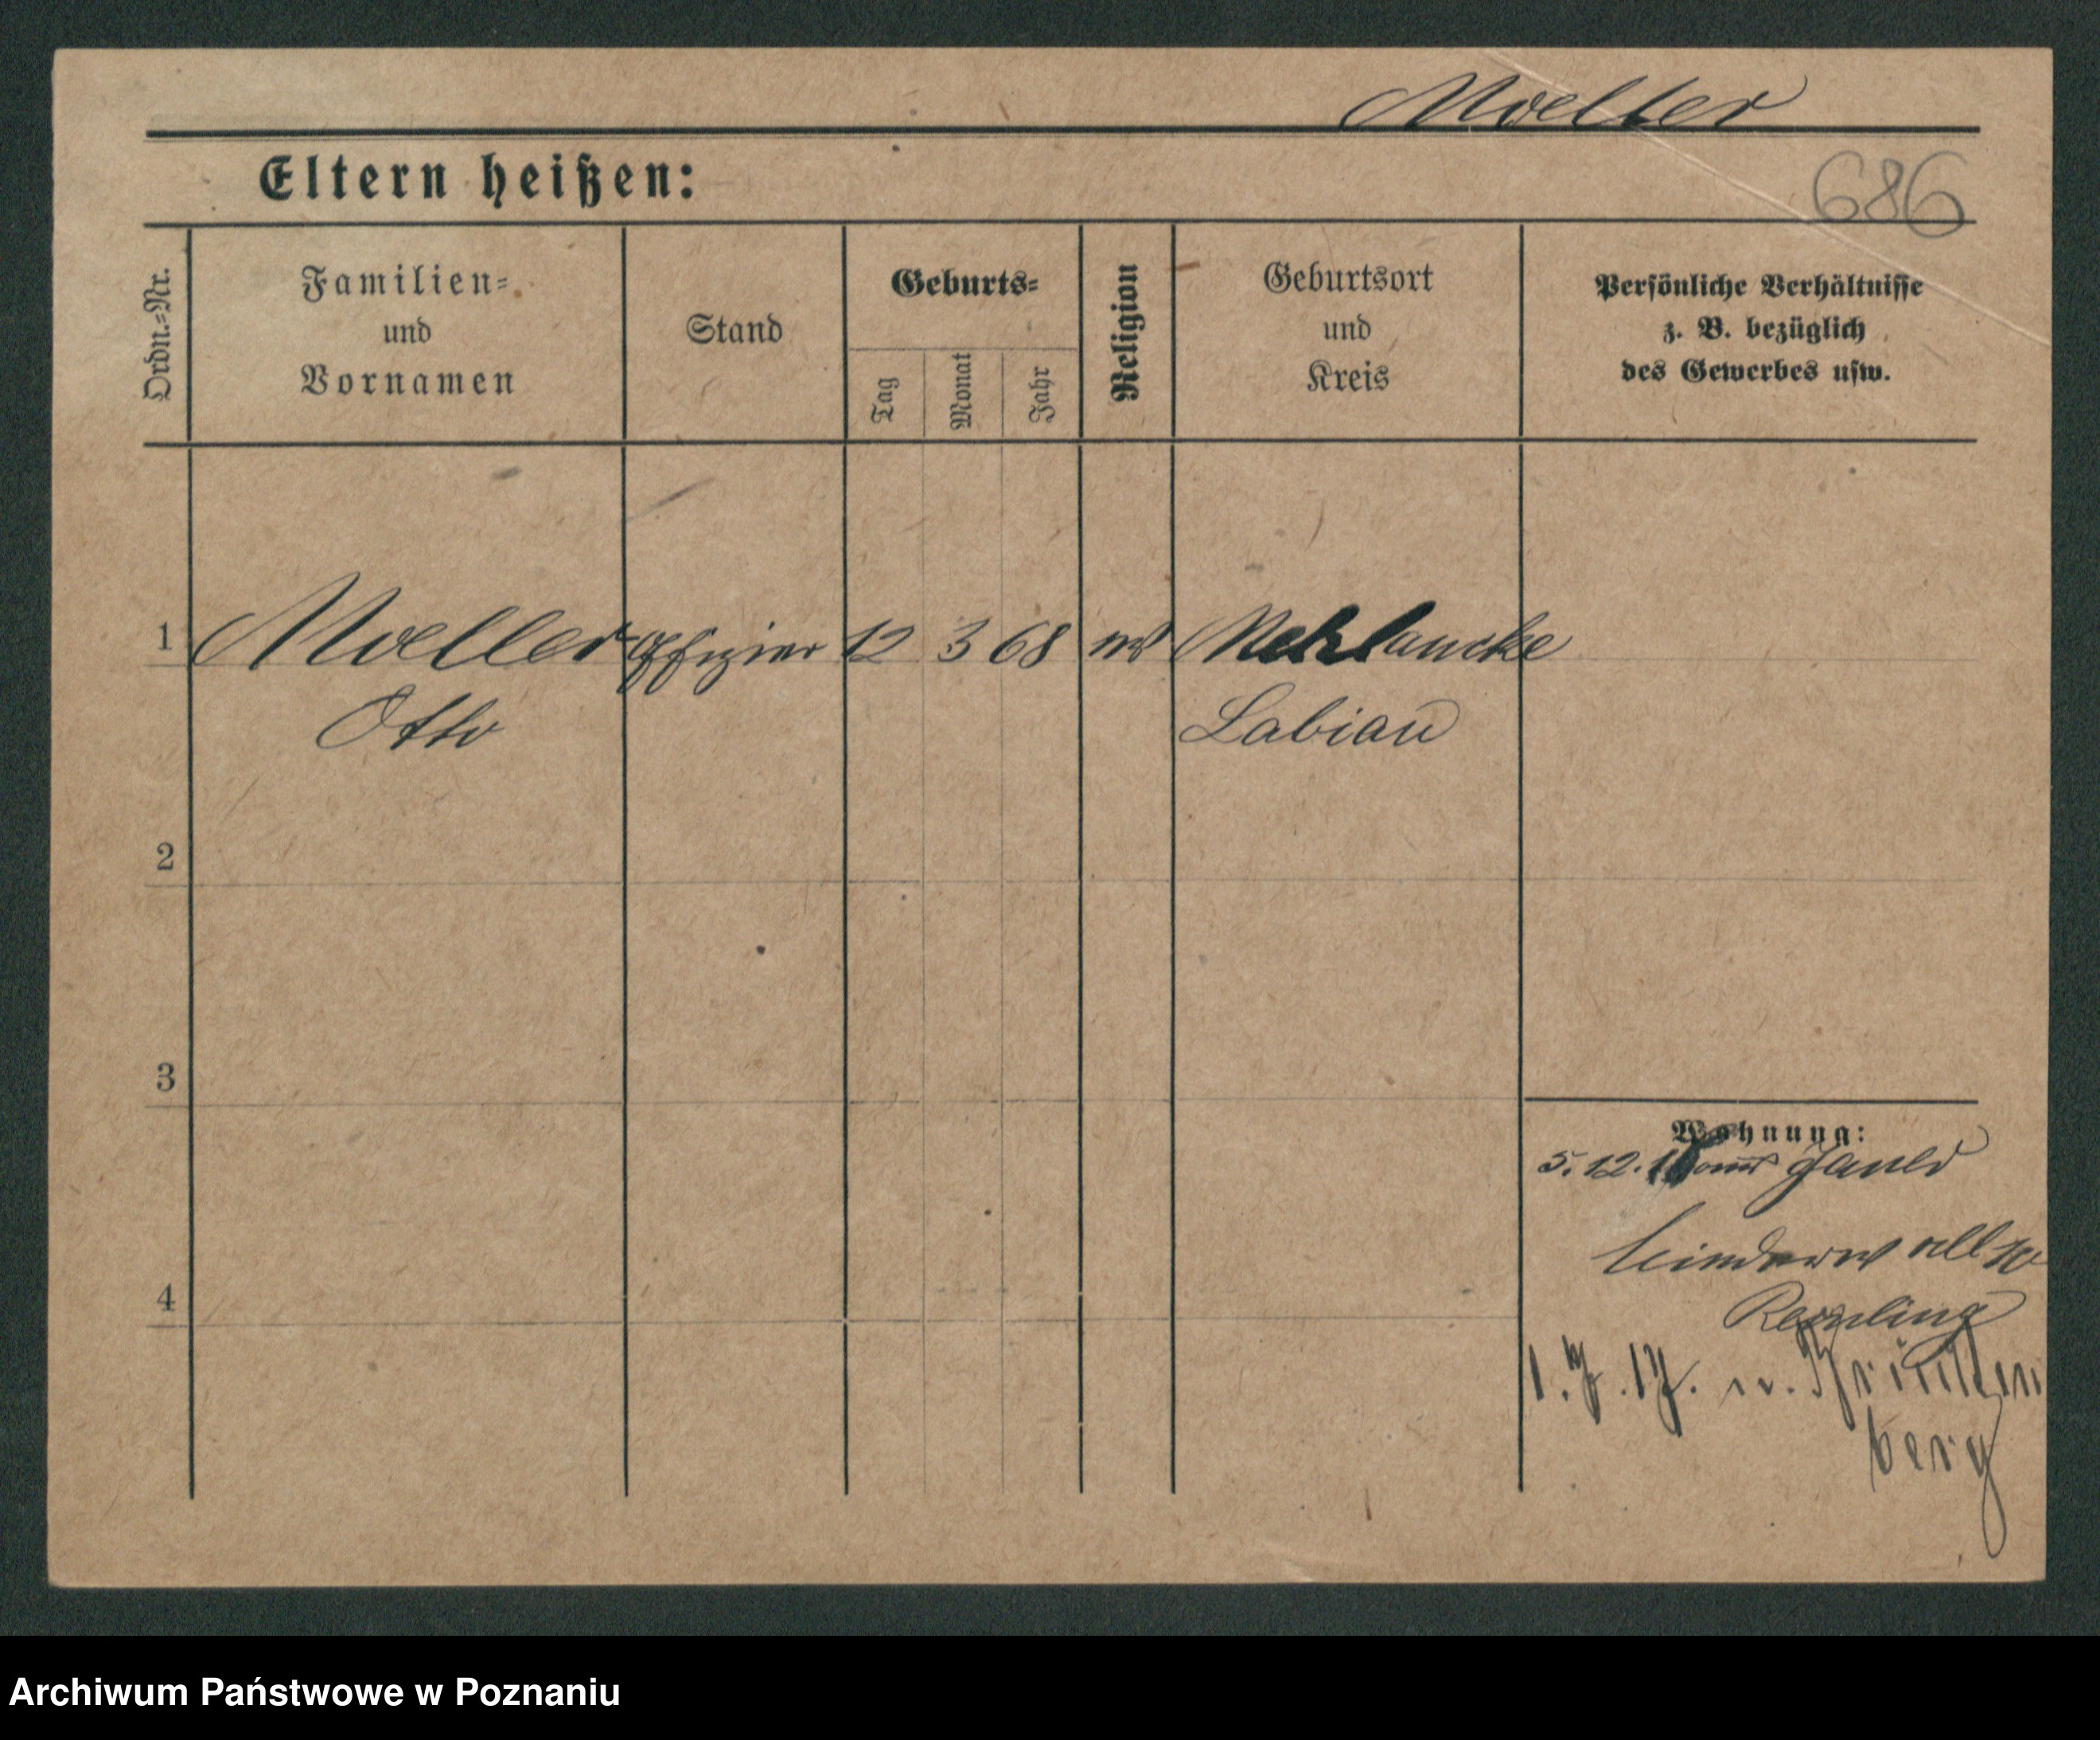 Moeller
Eltern heißen:
686
Ordn.-Nr.
Familien-
und
Vornamen
Stand
Geburts-
Tag
Monat
Jahr
Religion
Geburtsort
und
Kreis
Persönliche Verhältnisse
z. B. bezüglich
des Gewerbes usw.
1
Moeller Offizier 12 3 68 Mehlaucke
Otto
Labiau
2
3
4
Wohnung:
5. 12.
1. 7. 17. n.
berg
Archiwum Państwowe w Poznaniu